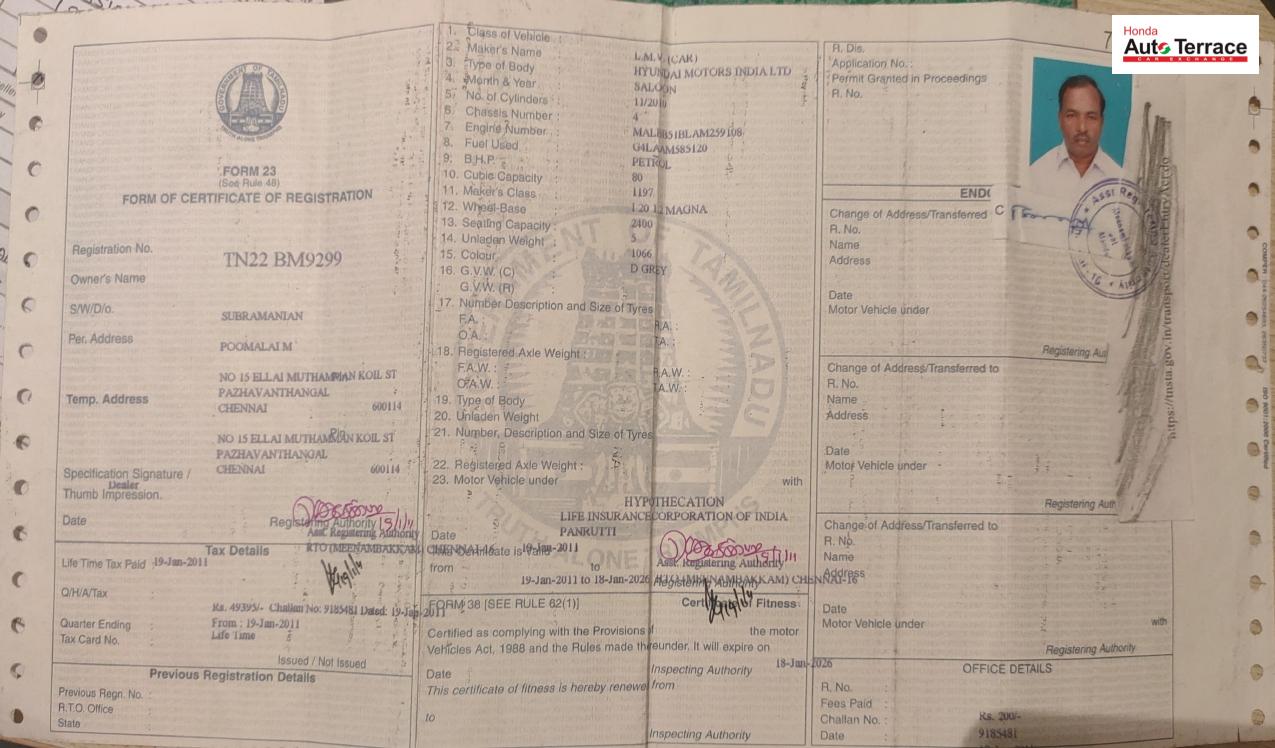 Honda
Auto Terrace
CAR EXCHANGE
GOVERNMENT OF TAMILNADU
TRUTH ALONE TRIUMPHS
FORM 23
(See Rule 48)
FORM OF CERTIFICATE OF REGISTRATION
Registration No.
TN22 BM9299
Owner's Name
S/W/D/o.
SUBRAMANIAN
Per. Address
POOMALAI M
NO 15 ELLAI MUTHAMMAN KOIL ST
PAZHAVANTHANGAL
Temp. Address
CHENNAI 600114
Pin
NO 15 ELLAI MUTHAMMAN KOIL ST
PAZHAVANTHANGAL
CHENNAI 600114
Specification Signature /
Dealer
Thumb Impression.
Date
Registering Authority
Asst. Registering Authority
RTO (MEENAMBAKKAM) CHENNAI-16
Tax Details
Life Time Tax Paid 19-Jan-2011
Q/H/A/Tax
Rs. 49395/- Challan No: 9185481 Dated: 19-Jan-2011
Quarter Ending From : 19-Jan-2011
Tax Card No. Life Time
Issued / Not Issued
Previous Registration Details
Previous Regn. No. :
R.T.O. Office :
State :
1. Class of Vehicle :
2. Maker's Name
L.M.V. (CAR)
3. Type of Body
HYUNDAI MOTORS INDIA LTD
4. Month & Year
SALOON
5. No. of Cylinders :
11/2010
6. Chassis Number :
4
7. Engine Number :
MALBB51BLAM259108
8. Fuel Used :
G4LAAM585120
9. B.H.P. :
PETROL
10. Cubic Capacity :
80
11. Maker's Class :
1197
12. Wheel-Base :
I 20 1.2 MAGNA
13. Seating Capacity :
2400
14. Unladen Weight :
5
15. Colour :
1066
16. G.V.W. (C) :
D GREY
G.V.W. (R) :
17. Number Description and Size of Tyres
F.A. : R.A. :
O.A. : T.A. :
18. Registered Axle Weight :
F.A.W. : R.A.W. :
O.A.W. : T.A.W. :
19. Type of Body :
20. Unladen Weight
21. Number, Description and Size of Tyres
NA
22. Registered Axle Weight :
23. Motor Vehicle under with
HYPOTHECATION
LIFE INSURANCECORPORATION OF INDIA
PANRUTTI
Date
This Certificate is Valid 19-Jan-2011
from to
Asst. Registering Authority
19-Jan-2011 to 18-Jan-2026 RTO (MEENAMBAKKAM) CHENNAI-16
Registering Authority
FORM 38 [SEE RULE 62(1)] Fitness
Certified as complying with the Provisions the motor
Vehicles Act, 1988 and the Rules made thereunder. It will expire on
18-Jan-2026
Date Inspecting Authority
This certificate of fitness is hereby renewe from
to
Inspecting Authority
R. Dis.
Application No. :
Permit Granted in Proceedings
R. No.
Change of Address/Transferred
R. No.
Name
Address
Date
Motor Vehicle under
Registering Aut
Change of Address/Transferred to
R. No.
Name
Address
Date
Motor Vehicle under
Registering Auth
Change of Address/Transferred to
R. No.
Name
Address
Date
Motor Vehicle under with
Registering Authority
OFFICE DETAILS
R. No. :
Fees Paid : Rs. 200/-
Challan No. : 9185481
Date :